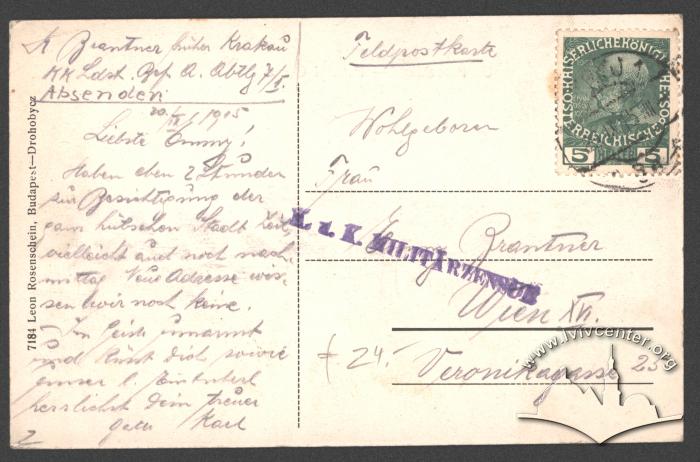 K Brantner früher Krakau
KK Ldst. Art. Abtlg 7/I.
Absender:
1915
Liebste Emmy!
Haben eben 2 Stunden
zur Besichtigung der
ganz hübschen Stadt Zeit,
vielleicht auch noch nach-
mittag. Neue Adresse wis-
sen wir noch keine.
Im Geiste umarmt
und küsst Dich sowie
unser l.
herzlichst Dein treuer
Karl
2
7184 Leon Rosenschein, Budapest—Drohobycz
Feldpostkarte
Wohlgeboren
Frau
Emmy Brantner
Wien XII.
Veronikagasse 25
24.-
K. u. K. MILITÄRZENSUR
KAISERLICHE KÖNIGLICHE
ÖSTERREICHISCHE POST
5 5
www.lvivcenter.org